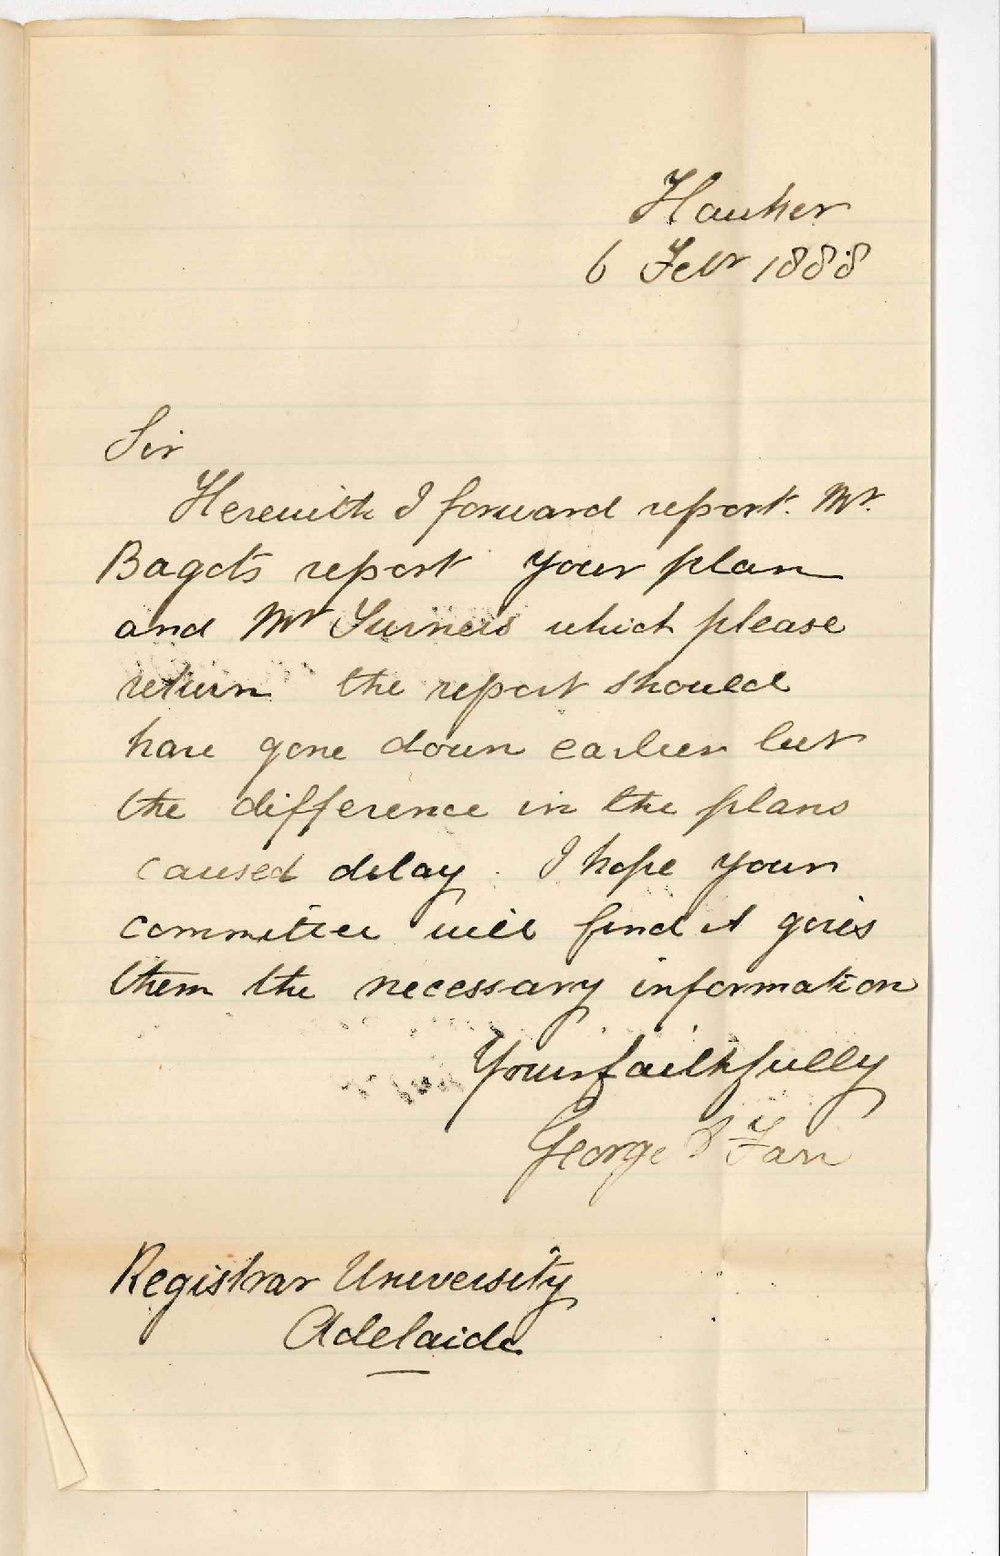 Hawker
6 Febr 1888
Sir
Herewith I forward report. Mr.
Bagots report your plan
and Mr Turners which please
return the report should
have gone down earlier but
the difference in the plans
caused delay. I hope your
committee will find it gives
them the necessary information
Yours faithfully
George Farr
Registrar University
Adelaide